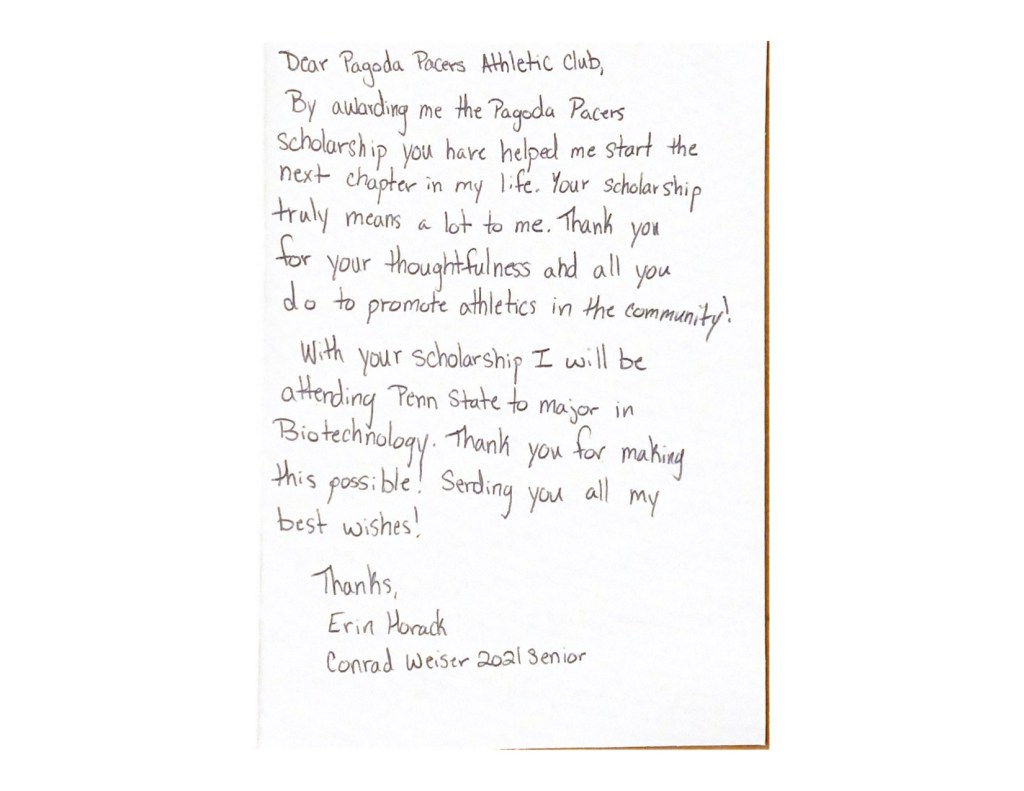 Dear Pagoda Pacers Athletic Club,
By awarding me the Pagoda Pacers
scholarship you have helped me start the
next chapter in my life. Your scholarship
truly means a lot to me. Thank you
for your thoughtfulness and all you
do to promote athletics in the community!
With your scholarship I will be
attending Penn State to major in
Biotechnology. Thank you for making
this possible! Sending you all my
best wishes!
Thanks,
Erin Horack
Conrad Weiser 2021 Senior